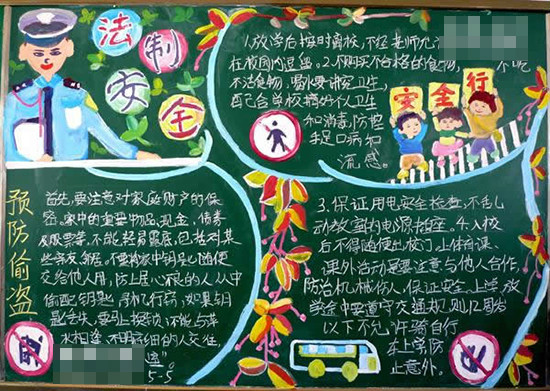 法制
安全
1.放学后按时离校,不经老师允
在校园内逗留。2.不购买不合格的食物, 不吃
不洁食物,
自己合学校搞好个人卫生
和消毒,防控
手足口病和
流感。
安全行
预防偷盗
首先,要注意对家庭财产的保
密,家中的重要物品,现金,债券
及股票等,不能轻易露底,包括对某
些亲友
交给他人用,防止居心不良的人从中
偷配钥匙,寻机行窃,如果钥
匙丢失,要马上换锁,不能与萍
水相逢,不明底细的人交往,
5-5
3.保证用电安全检查,不乱
动教室内电源插座。4.入校
后不得随便出校门,上体育课、
课外活动要注意与他人合作,
防治机械伤人,保证安全,上学、放
学途中要遵守交通规则,12周岁
以下不允许骑自行
车上学防
止意外。